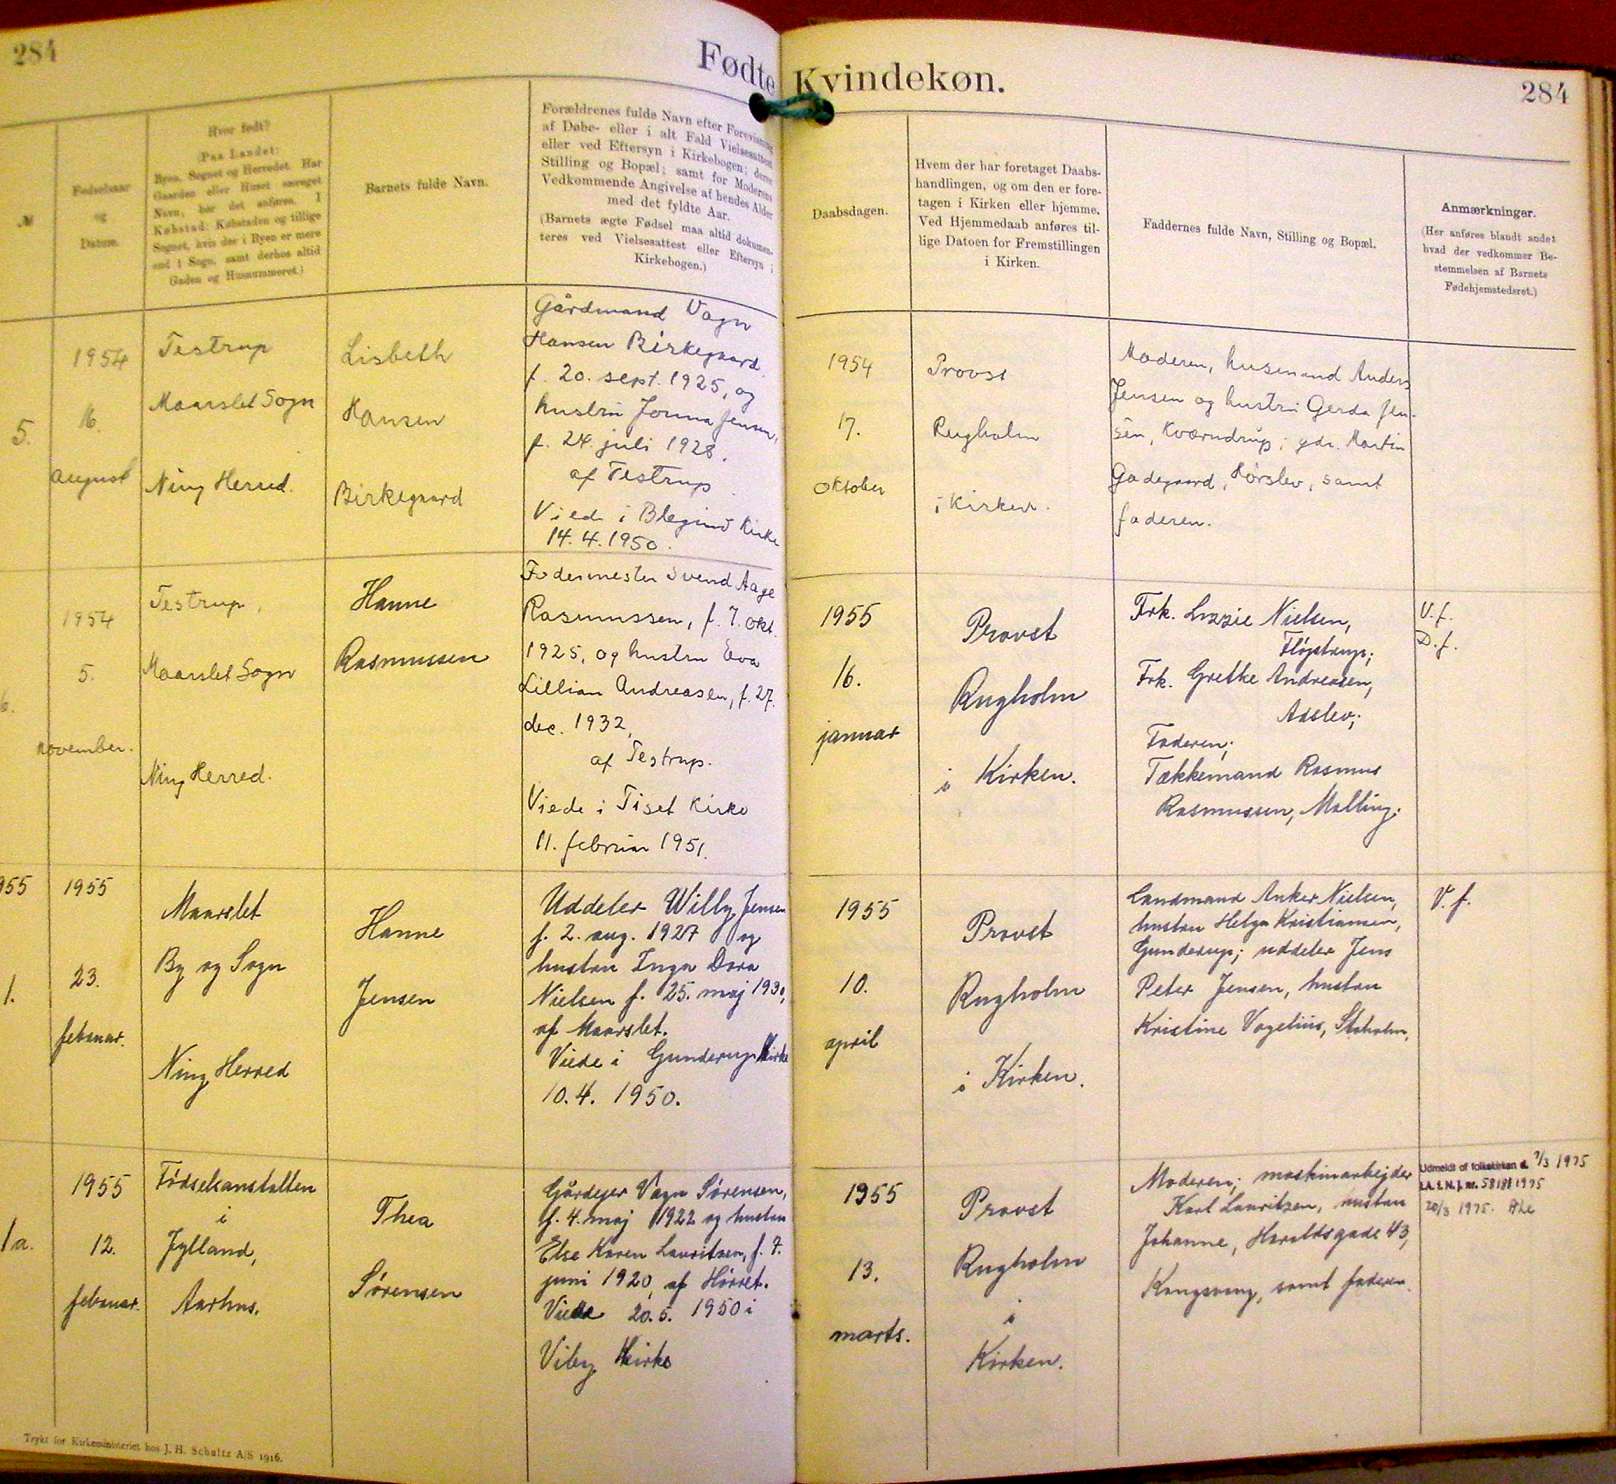 284
Fødte
Kvindekøn.
284
№
Fødselsaar
og
Datum.
Hvor født?
(Paa Landet:
Byen, Sognet og Herredet. Har
Gaarden eller Huset særeget
Navn, bør det anføres. I
Købstad: Købstaden og tillige
Sognet, hvis der i Byen er mere
end 1 Sogn, samt derhos altid
Gaden og Husnummeret.)
Barnets fulde Navn.
Forældrenes fulde Navn efter Forevisning
af Døbe- eller i alt Fald Vielsesattest
eller ved Eftersyn i Kirkebogen; deres
Stilling og Bopæl; samt for Moderens
Vedkommende Angivelse af hendes Alder
med det fyldte Aar.
(Barnets ægte Fødsel maa altid dokumen-
teres ved Vielsesattest eller Eftersyn i
Kirkebogen.)
Daabsdagen.
Hvem der har foretaget Daabs-
handlingen, og om den er fore-
tagen i Kirken eller hjemme.
Ved Hjemmedaab anføres til-
lige Datoen for Fremstillingen
i Kirken.
Faddernes fulde Navn, Stilling og Bopæl.
Anmærkninger.
(Her anføres blandt andet
hvad der vedkommer Be-
stemmelsen af Barnets
Fødehjemstedsret.)
5.
1954
16.
august
Testrup
Maarslet Sogn
Ning Herred.
Lisbeth
Hansen
Birkegaard
Gårdmand Vagn
Hansen Birkegaard
f. 20. sept. 1925, og
hustru Jonna Jensen,
f. 24. juli 1928.
af Testrup.
Viede i Blegind Kirke
14.4.1950.
1954
17.
oktober
Provst
Rugholm
i Kirken.
Moderen, husmand Anders
Jensen og hustru Gerda Jen-
sen, Kværndrup; gdr. Martin
Gadegaard, Hørslev, samt
faderen.
6.
1954
5.
november.
Testrup,
Maarslet Sogn
Ning Herred.
Hanne
Rasmussen
Fodermester Svend Aage
Rasmussen, f. 7. okt.
1925, og hustru Eva
Lillian Andreasen, f. 27.
dec. 1932,
af Testrup.
Viede i Tiset Kirke
11. februar 1951.
1955
16.
januar
Provst
Rugholm
i Kirken.
Frk. Lizzie Nielsen,
Fløjstrup;
Frk. Grethe Andreasen,
Adslev;
Faderen;
Tækkemand Rasmus
Rasmussen, Malling.
V.f.
D.f.
1955
1.
1955
23.
februar.
Maarslet
By og Sogn
Ning Herred
Hanne
Jensen
Uddeler Willy Jensen
f. 2. aug. 1927 og
hustru Inga Dora
Nielsen f. 25. maj 1930,
af Maarslet.
Viede i Gunderup Kirke
10.4. 1950.
1955
10.
april
Provst
Rugholm
i Kirken.
Landmand Anker Nielsen,
hustru Helga Kristiansen,
Gunderup; uddeler Jens
Peter Jensen, hustru
Kristine Vogelius, Stoholm.
V. f.
1a.
1955
12.
februar.
Fødselsanstalten
i
Jylland,
Aarhus.
Thea
Sørensen
Gårdejer Vagn Sørensen,
f. 4. maj 1922 og hustru
Else Karen Lauritzen, f. 7.
juni 1920, af Hørret.
Viede 20.5. 1950 i
Viby Kirke
1955
13.
marts.
Provst
Rugholm
i
Kirken.
Moderen; maskinarbejder
Karl Lauritzen, hustru
Johanne, Haraldsgade 43,
Kongsvang, samt faderen.
Udmeldt af folkekirken d. 7/3 1975
I.A. I. N. J. nr. 58181 1975
20/3 1975.
Trykt for Kirkeministeriet hos J. H. Schultz A/S 1916.